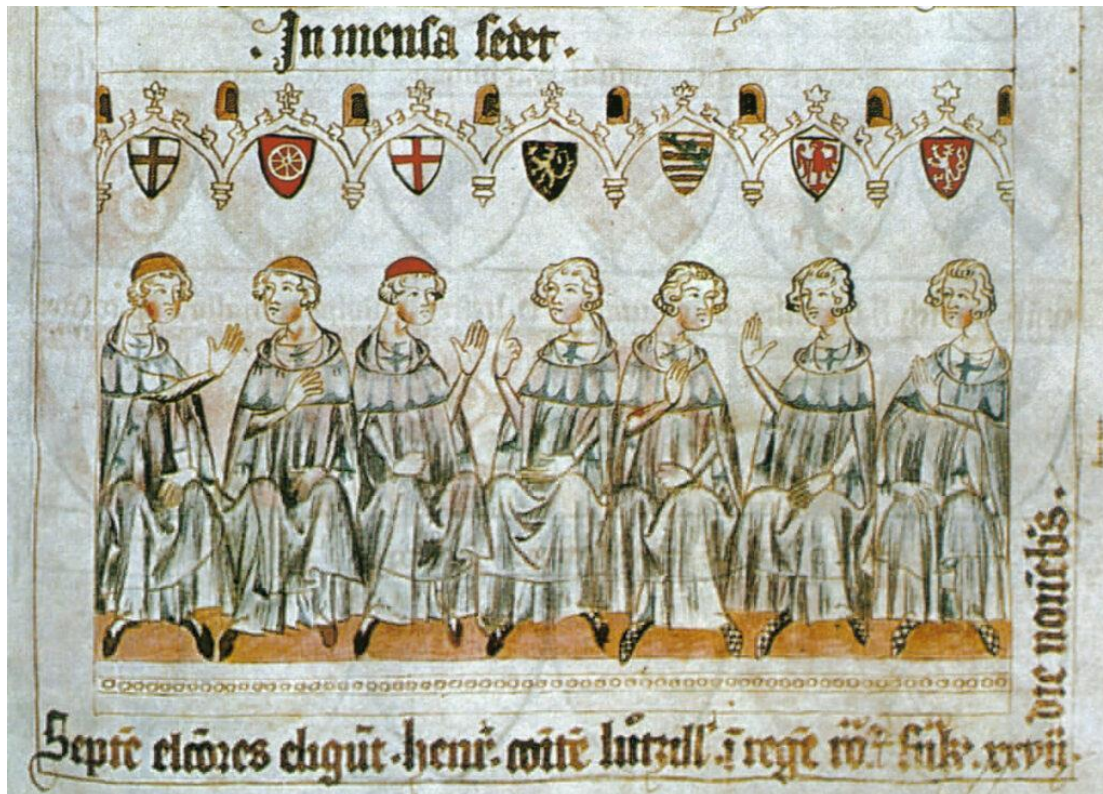 . In mensa sedet .
Septē elcōres eligūt . henr̄ . comitē lutzill' . ī regē rō xxvii .
die nouēb's .